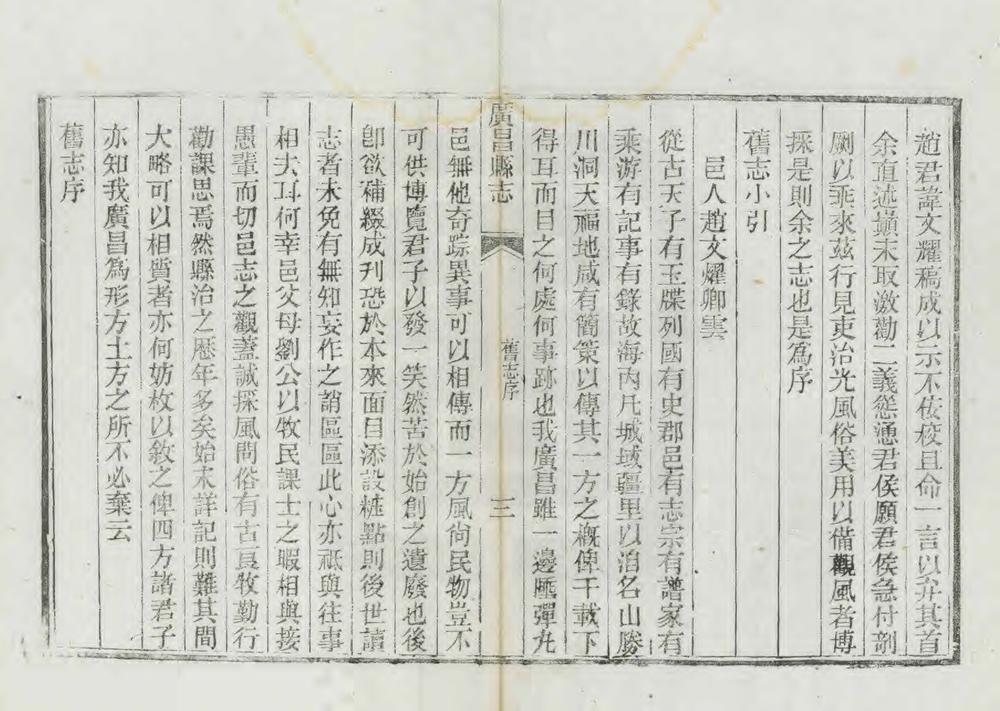 趙君諱文耀稿成以示不佞梭且命一言以弁其首
余直述顛末取激勸二義慫慂君侯願君侯急付剞
劂以乖來茲行見吏治光風俗美用以備觀風者博
採是則余之志也是爲序
舊志小引
邑人趙文燿卿雲
從古天子有玉牒列國有史郡邑有志宗有譜家有
乘游有記事有錄故海內凡城域疆里以洎名山勝
川洞天福地咸有簡策以傳其一方之槪俾千載下
得耳而目之何處何事跡也我廣昌雖一邊壥彈丸
廣昌縣志
舊志序
三
邑無他奇踪異事可以相傳而一方風尙民物豈不
可供博覽君子以發一笑然苦於始創之遺廢也後
卽欲補綴成刊恐於本來面目添設粧點則後世讀
志者未免有無知妄作之誚區區此心亦祗與往事
相去耳何幸邑父母劉公以牧民課士之暇相與接
愚輩而切邑志之觀蓋誠採風問俗有古良牧勤行
勸課思焉然縣治之歷年多矣始末詳記則難其間
大略可以相質者亦何妨枚以敘之俾四方諸君子
亦知我廣昌爲形方土方之所不必棄云
舊志序